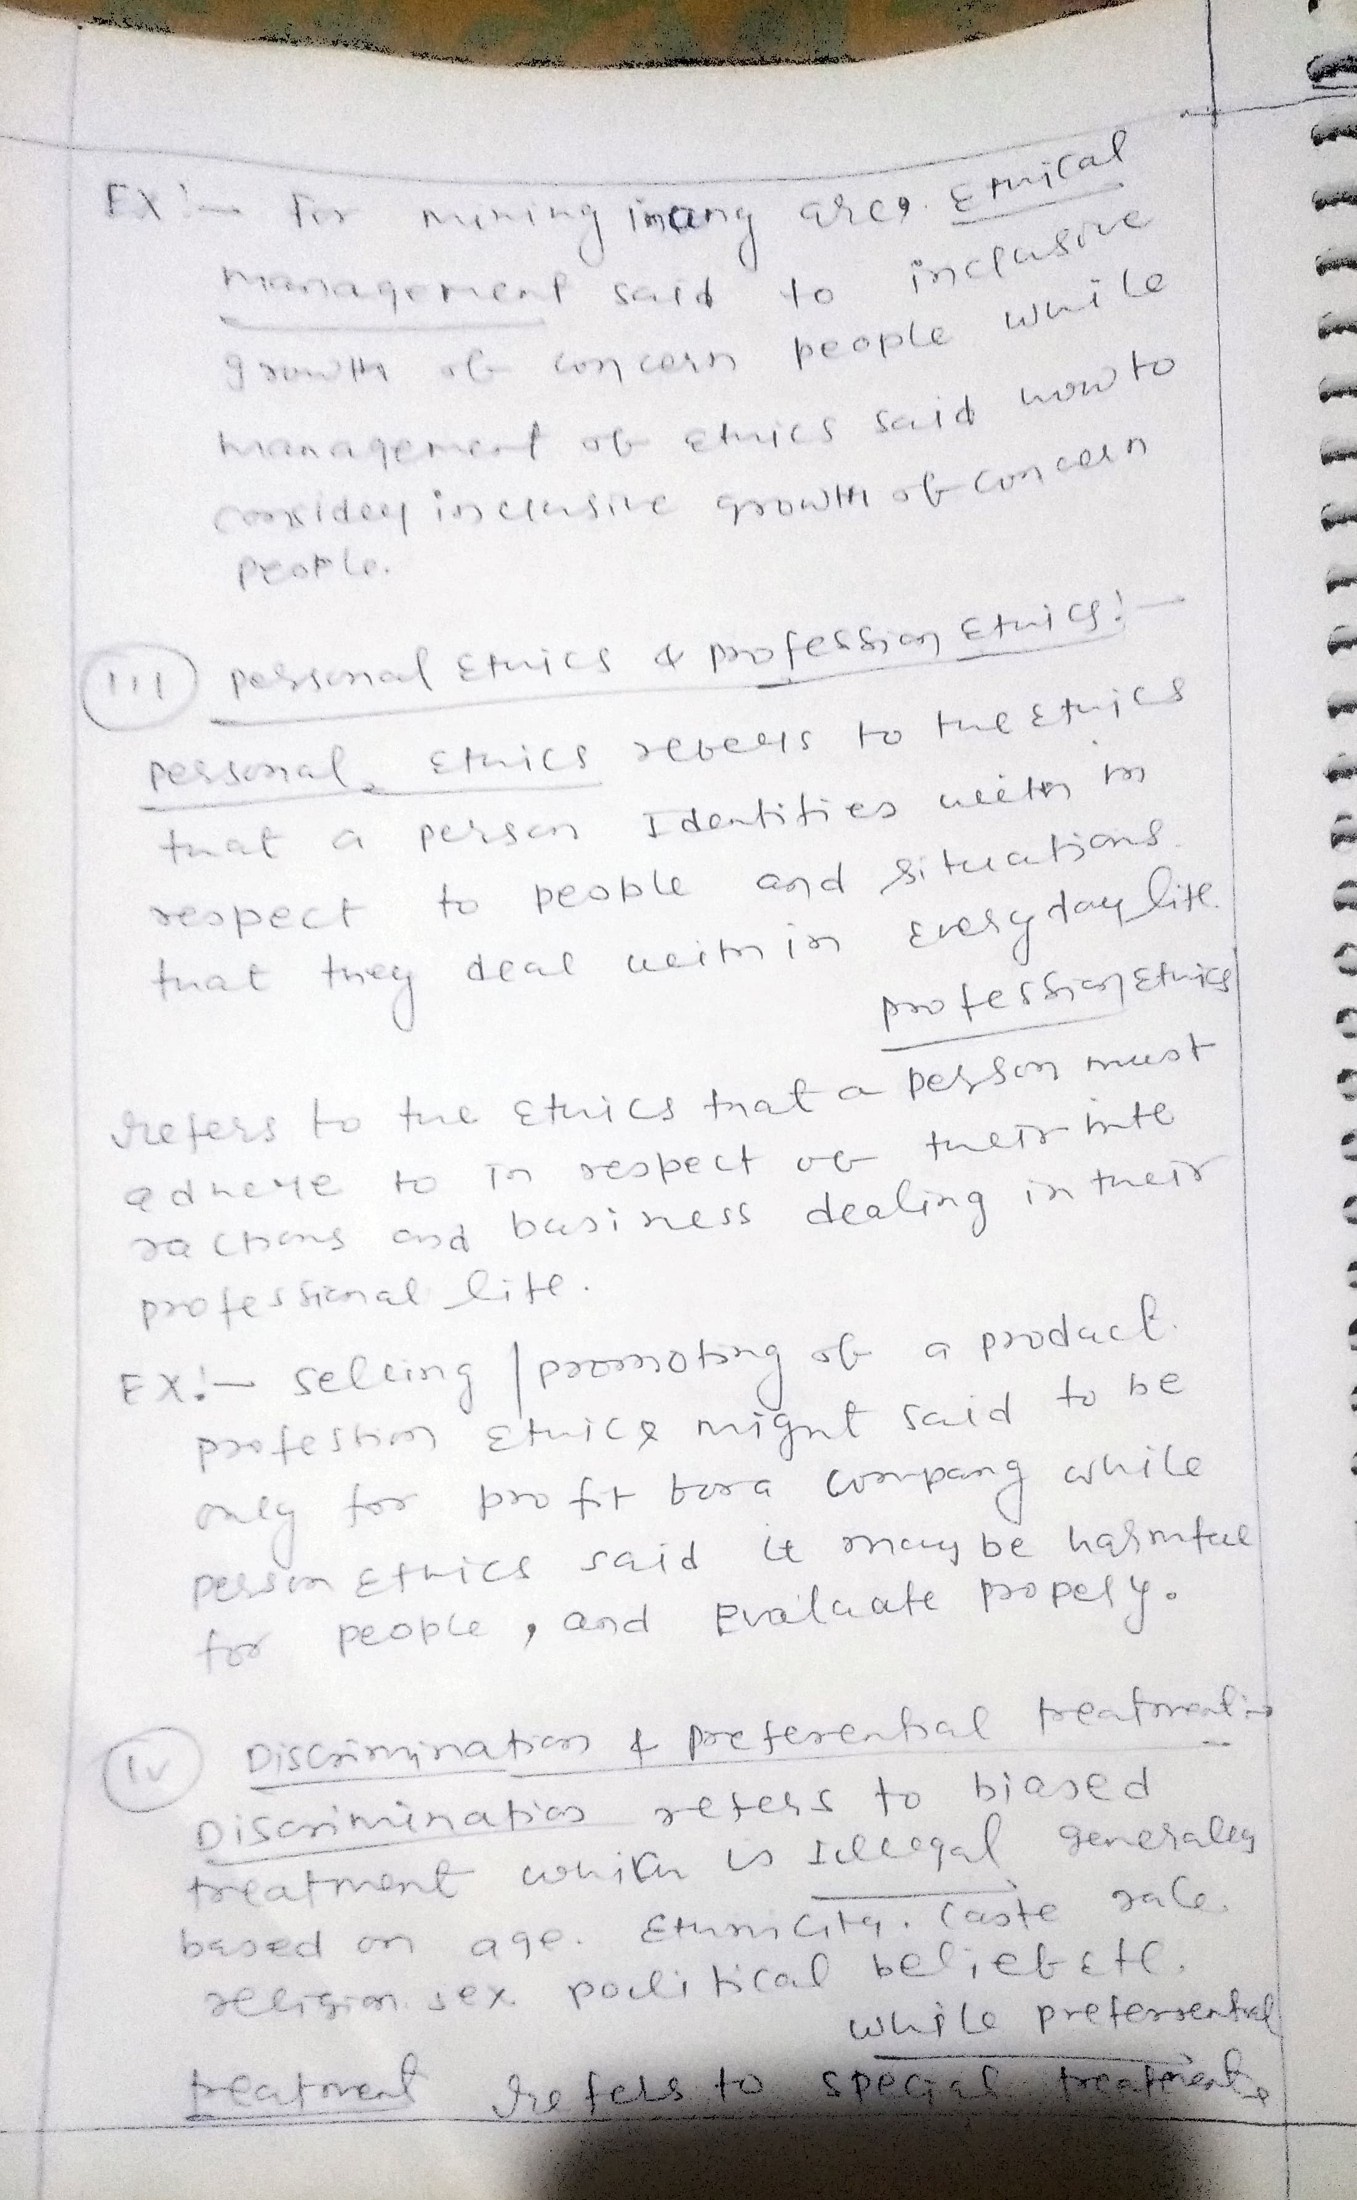 EX:- For mining in any area. Ethical
management said to inclusive
growth of concern people while
management of ethics said how to
consider inclusive growth of concern
people.
(iii) personal Ethics & profession Ethics:-
personal Ethics refers to the Ethics
that a person Identifies with in
respect to people and situations
that they deal with in everyday life.
profession Ethics
refers to the Ethics that a person must
adhere to in respect of their inte
ractions and business dealing in their
professional life.
EX:- selling / promoting of a product.
profession Ethics might said to be
only for profit for a company while
person Ethics said it may be harmful
for people, and Evaluate propely.
(iv) Discrimination & preferential treatment:-
Discrimination refers to biased
treatment which is Illegal generally
based on age. Ethnicity. Caste race.
religion. sex. poilitical belief etc.
while preferrential
treatment refers to special treatments